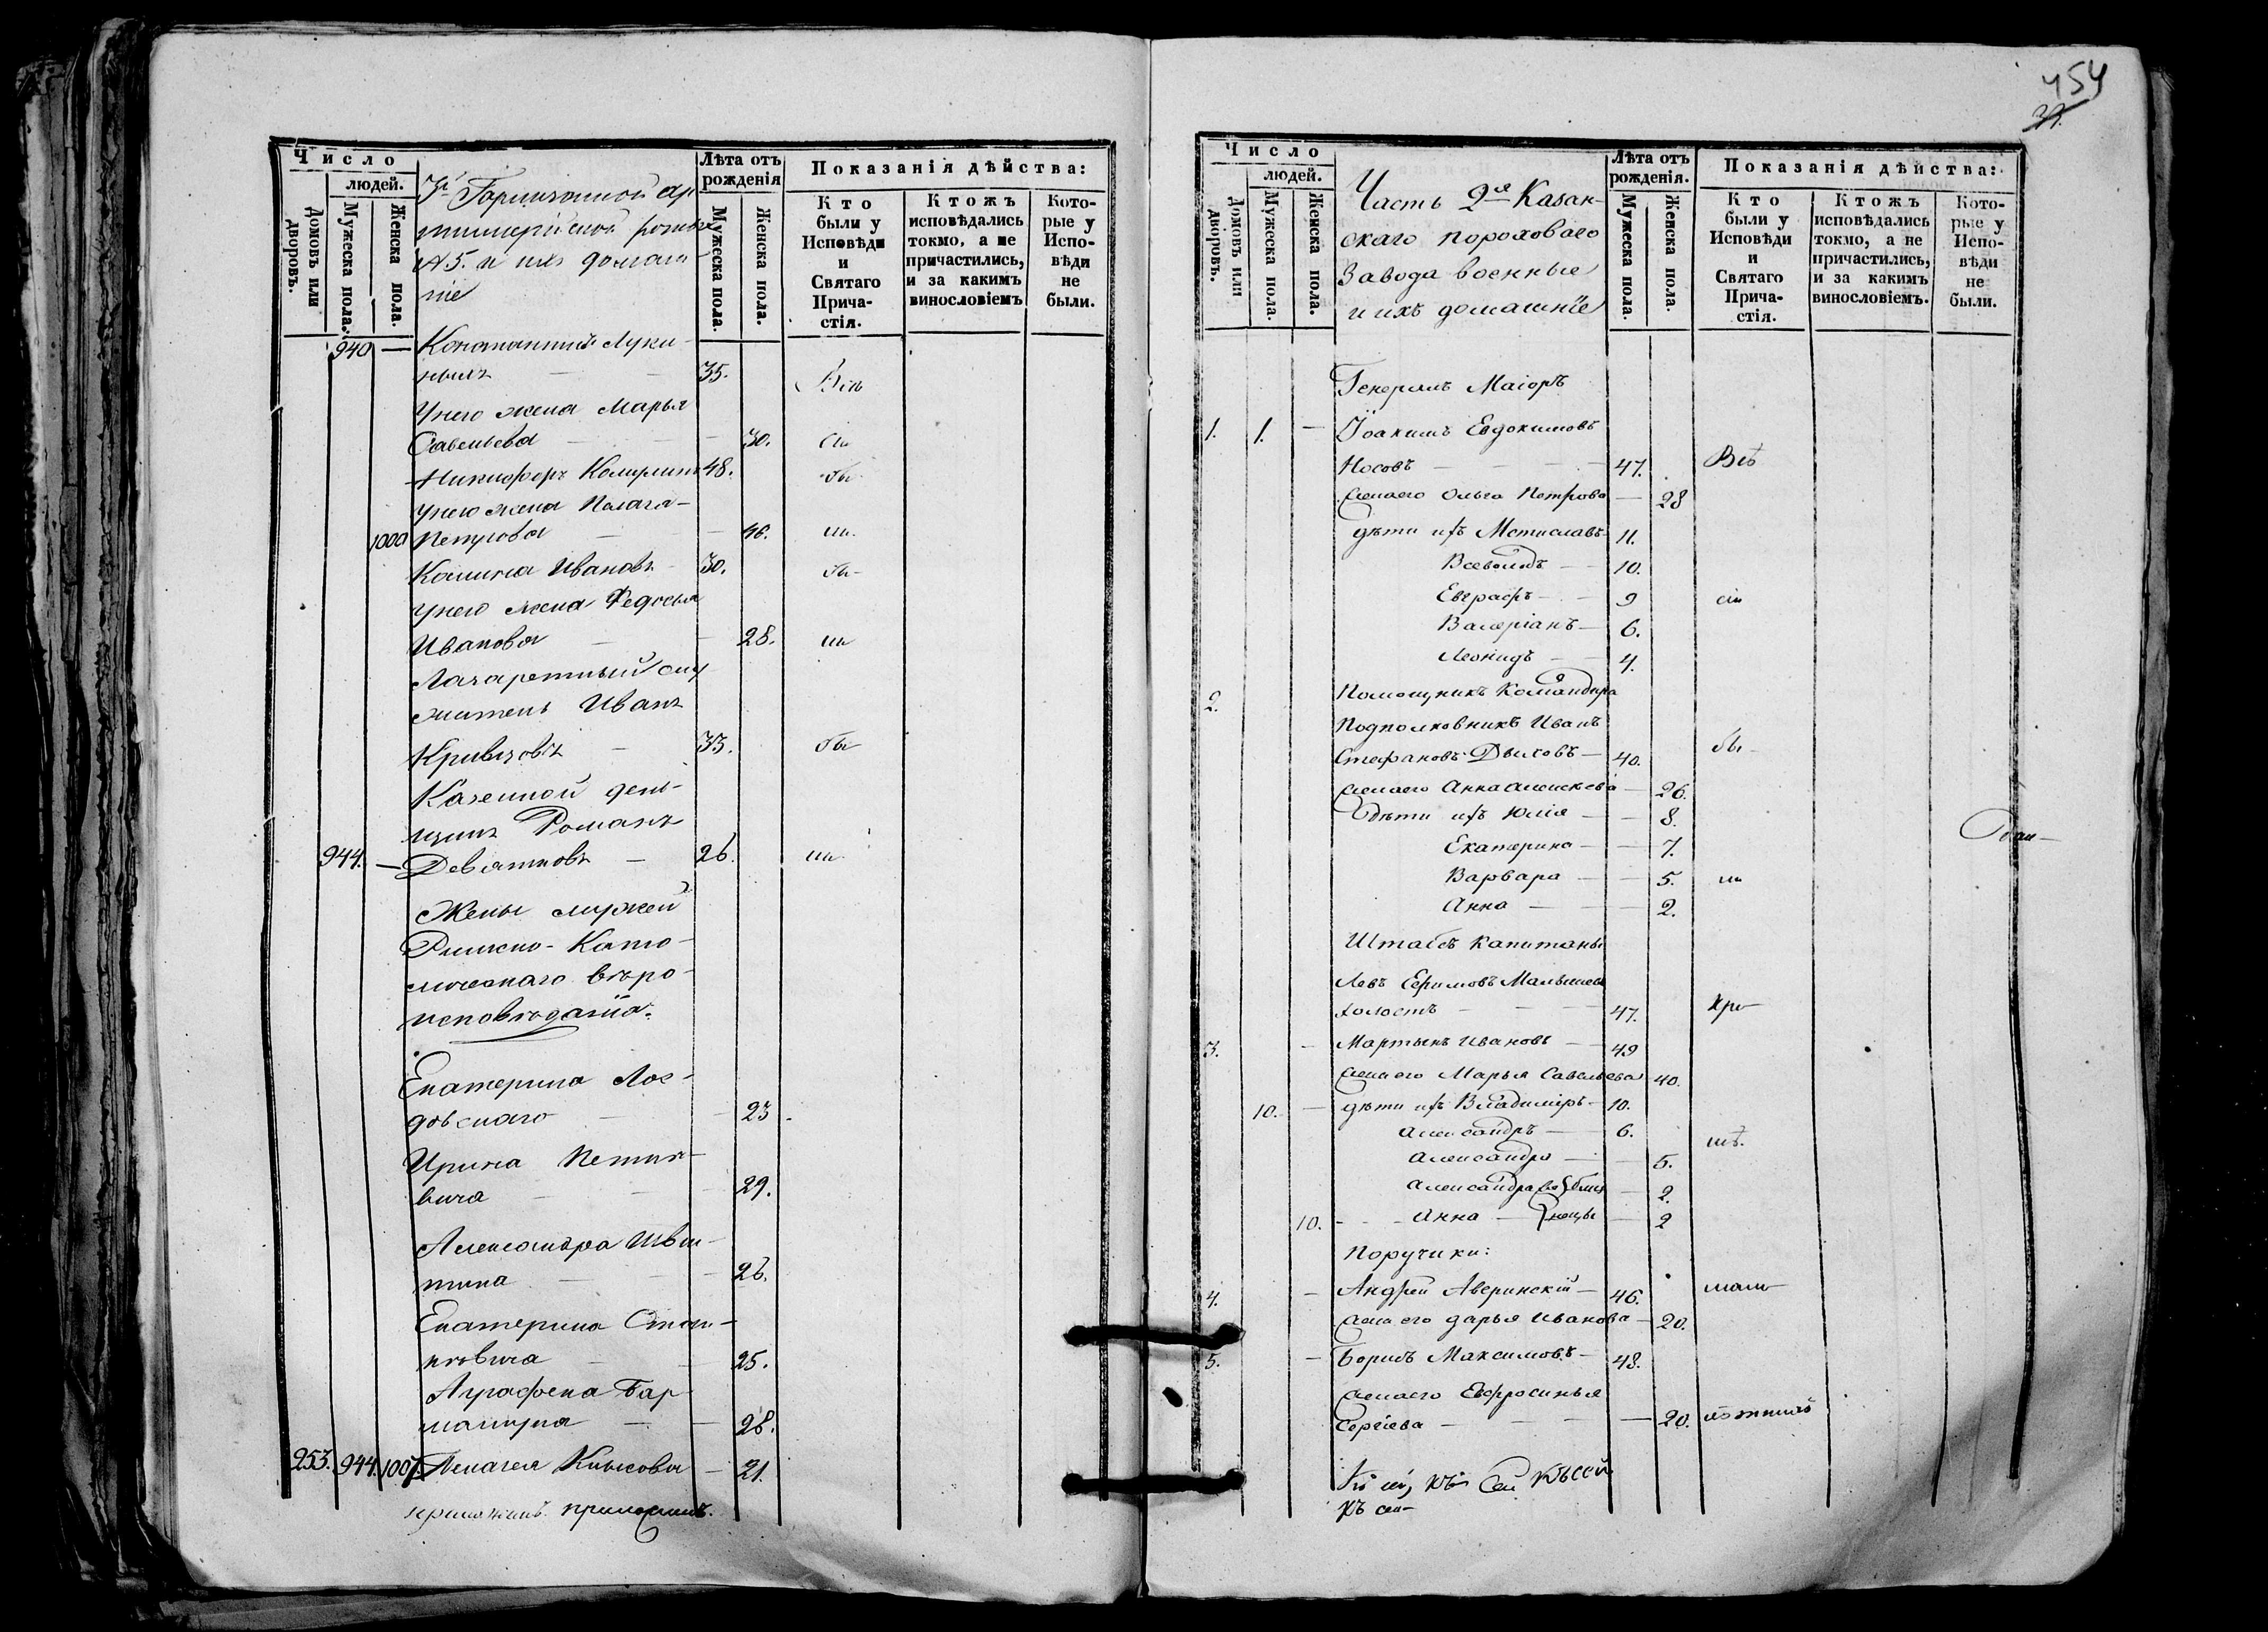 Число
людей.
Домовъ или дворовъ.
Мужеска пола.
Женска пола.
3й Гарнизонной ар
тиллерійской роты
№ 5. и ихъ домаш
ніе
Лѣта отъ рожденія
Мужеска пола.
Женска пола.
Показанія дѣйства:
Кто были у Исповѣди и Святаго Прича-стія.
Ктожъ исповѣдались токмо, а не причастились, и за какимъ винословіемъ
Кото-рые у Испо-вѣди не были.
940 — Константинъ Луки-
35.
Унего жена Марья
Савельева — 30.
Никифоръ 48. бы
унего жена Пелаге-
1000 Петрова — 46. ли.
Калина Ивановъ 30. бы-
унего жена Федосья
Иванова — 28. ли
Лазаретный слу
житель Иванъ
Кривцовъ — 33. бы
Казенной день-
щикъ Романъ
944. — Девятковъ — 26. ли
Жены мужей
Римско-Като-
лическаго вѣро-
исповѣданія.
Екатерина Лос-
23
Ирина
вича — 29.
Александра
26.
Екатерина Стан-
ковича — 25.
Аграфена Бар-
28.
253. 944. 1007. Пелагея — 21.
454
Число
людей.
Домовъ или дворовъ.
Мужеска пола.
Женска пола.
Часть 2я Казан-
скаго пороховаго
Завода военные
и ихъ домашніе
Лѣта отъ рожденія.
Мужеска пола.
Женска пола.
Показанія дѣйства:
Кто были у Исповѣди и Святаго Прича-стія.
Ктожъ исповѣдались токмо, а не причастились, и за какимъ винословіемъ.
Кото-рые у Испо-вѣди не были.
Генералъ Маіоръ
1. 1. — Іоакимъ Евдокимовъ
Носовъ — 47. Всѣ
жена его Ольга Петрова — 28
дѣти ихъ Мстиславъ — 11.
Всеволодъ — 10.
Евграфъ — 9 сіи
Валеріанъ — 6.
Леонидъ — 4.
2. Помощникъ Командира
Подполковникъ Иванъ
Стефановъ Дыховъ — 40. бы-
жена его Анна Алексѣева — 26.
дѣти ихъ Юлія — 8.
Екатерина — 7.
Варвара — 5. ли
Анна — 2.
Штабсъ капитаны
Левъ Ефимовъ Малышевъ
холостъ — 47.
3. — Мартынъ Ивановъ — 49
жена его Марья Савельева 40.
10. — дѣти ихъ Владиміръ — 10.
Александръ — 6.
Александра — 5.
Александра близ 2.
10. — Анна — нецы 2
Поручики:
4. — Андрей Аверинскій — 46. мало
жена его Дарья Иванова — 20.
5. — Борисъ Максимовъ — 48.
жена его Евфросинья
Сергіева — 20.
Къ сей
къ сей